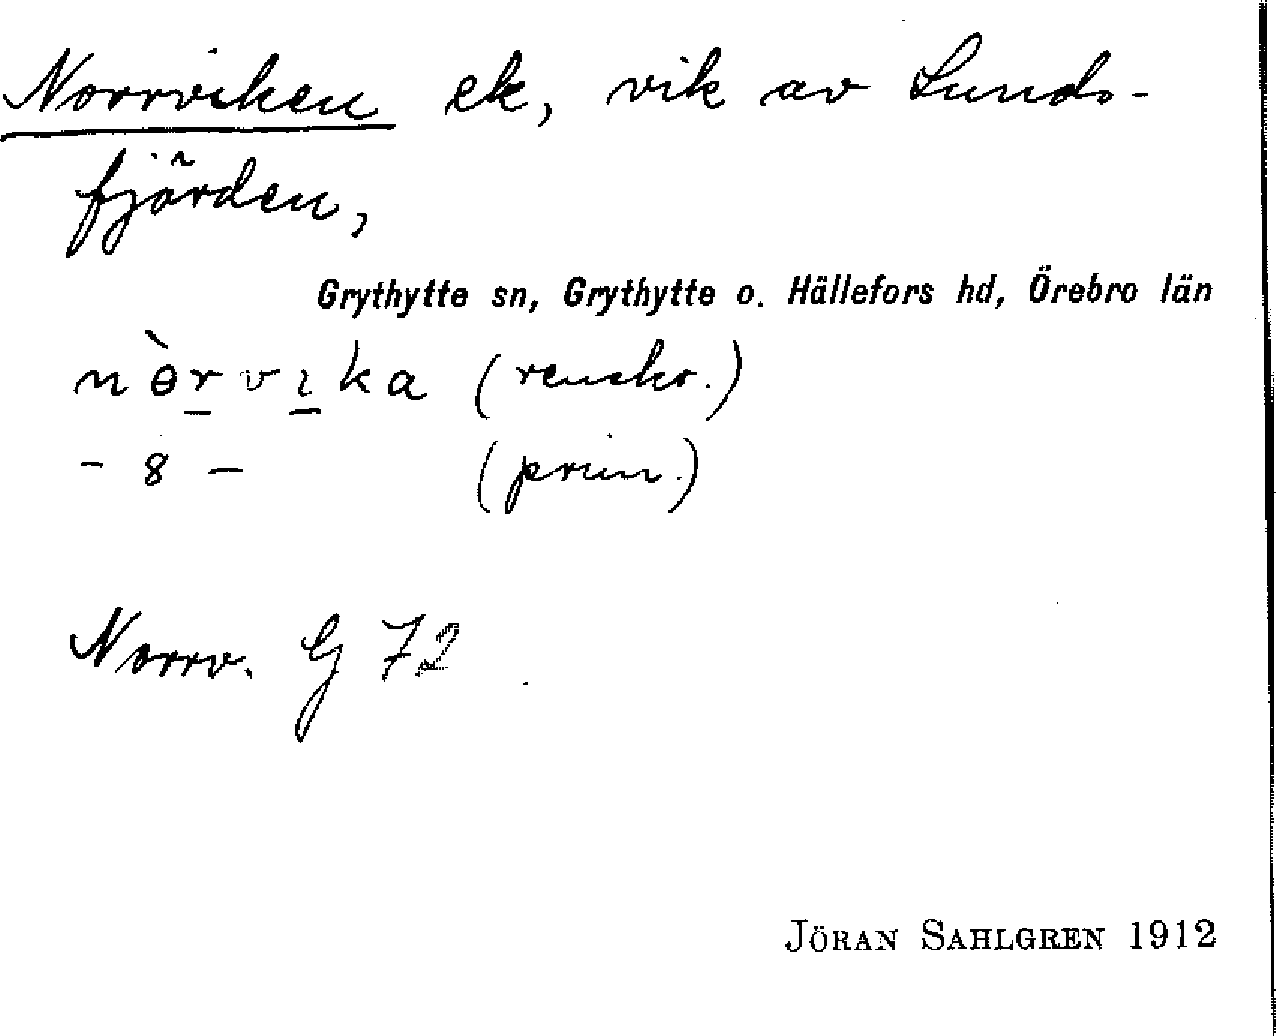 Norrviken ek, vik av Lunds-
fjärden,
Grythytte sn, Grythytte o. Hällefors hd, Örebro län
nɵ̀r̲vɩ̲ka (renskr.)
- 8 - (prim.)
Norrv. G 72
JÖRAN SAHLGREN 1912